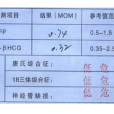 测项目 结果（MOM） 参考值范
FP 0.74 0.5-1.5
-βHCG 0.32 0.35-2.5
唐氏综合征： 低 危
18三体综合征： 低 危
神经管缺损： 低 危